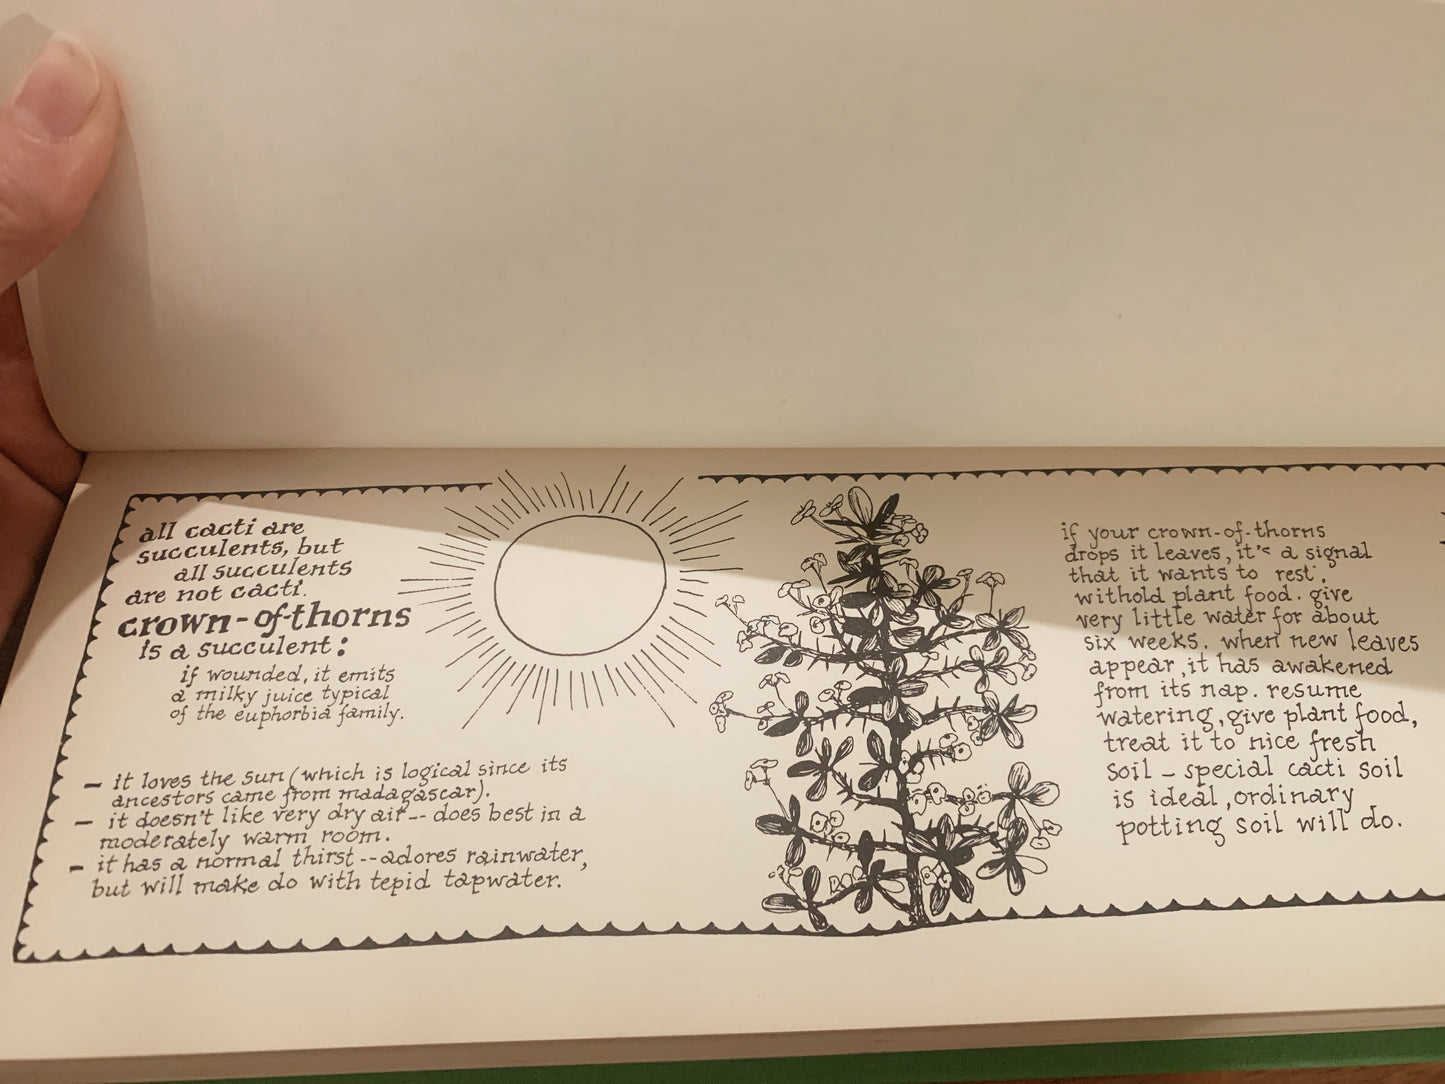 all cacti are
succulents, but
all succulents
are not cacti.
crown-of-thorns
is a succulent:
if wounded, it emits
a milky juice typical
of the euphorbia family.
— it loves the sun (which is logical since its
ancestors came from madagascar).
— it doesn't like very dry air -- does best in a
moderately warm room.
— it has a normal thirst -- adores rainwater,
but will make do with tepid tapwater.
if your crown-of-thorns
drops it leaves, it's a signal
that it wants to rest.
withold plant food. give
very little water for about
six weeks. when new leaves
appear, it has awakened
from its nap. resume
watering, give plant food,
treat it to nice fresh
soil — special cacti soil
is ideal, ordinary
potting soil will do.